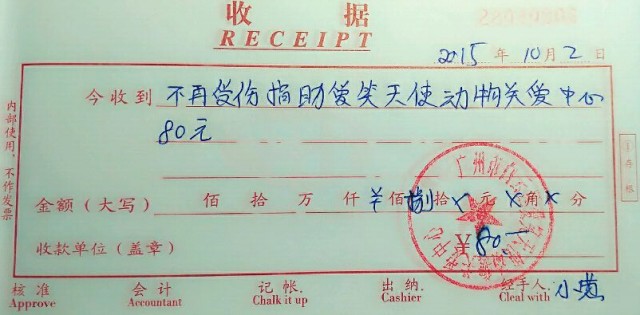 收 据
RECEIPT
2015 年 10 月 2 日
今收到 不再受伤捐助爱笑天使动物关爱中心
80元
金额(大写) 佰 拾 万 仟 ¥ 佰 捌 拾 × 元 × 角 × 分
收款单位(盖章) ¥ 80—
核准 会计 记帐. 出纳. 经手人.
Approve Accountant Chalk it up Cashier Cleal with
内部使用,不作发票
广州市
中心